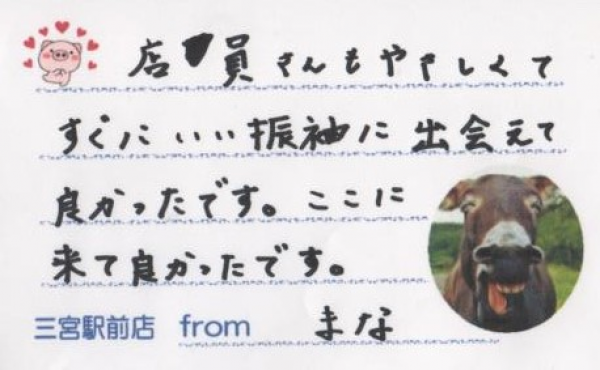 店員さんもやさしくて
すぐにいい振袖に出会えて
良かったです。ここに
来て良かったです。
三宮駅前店 from まな